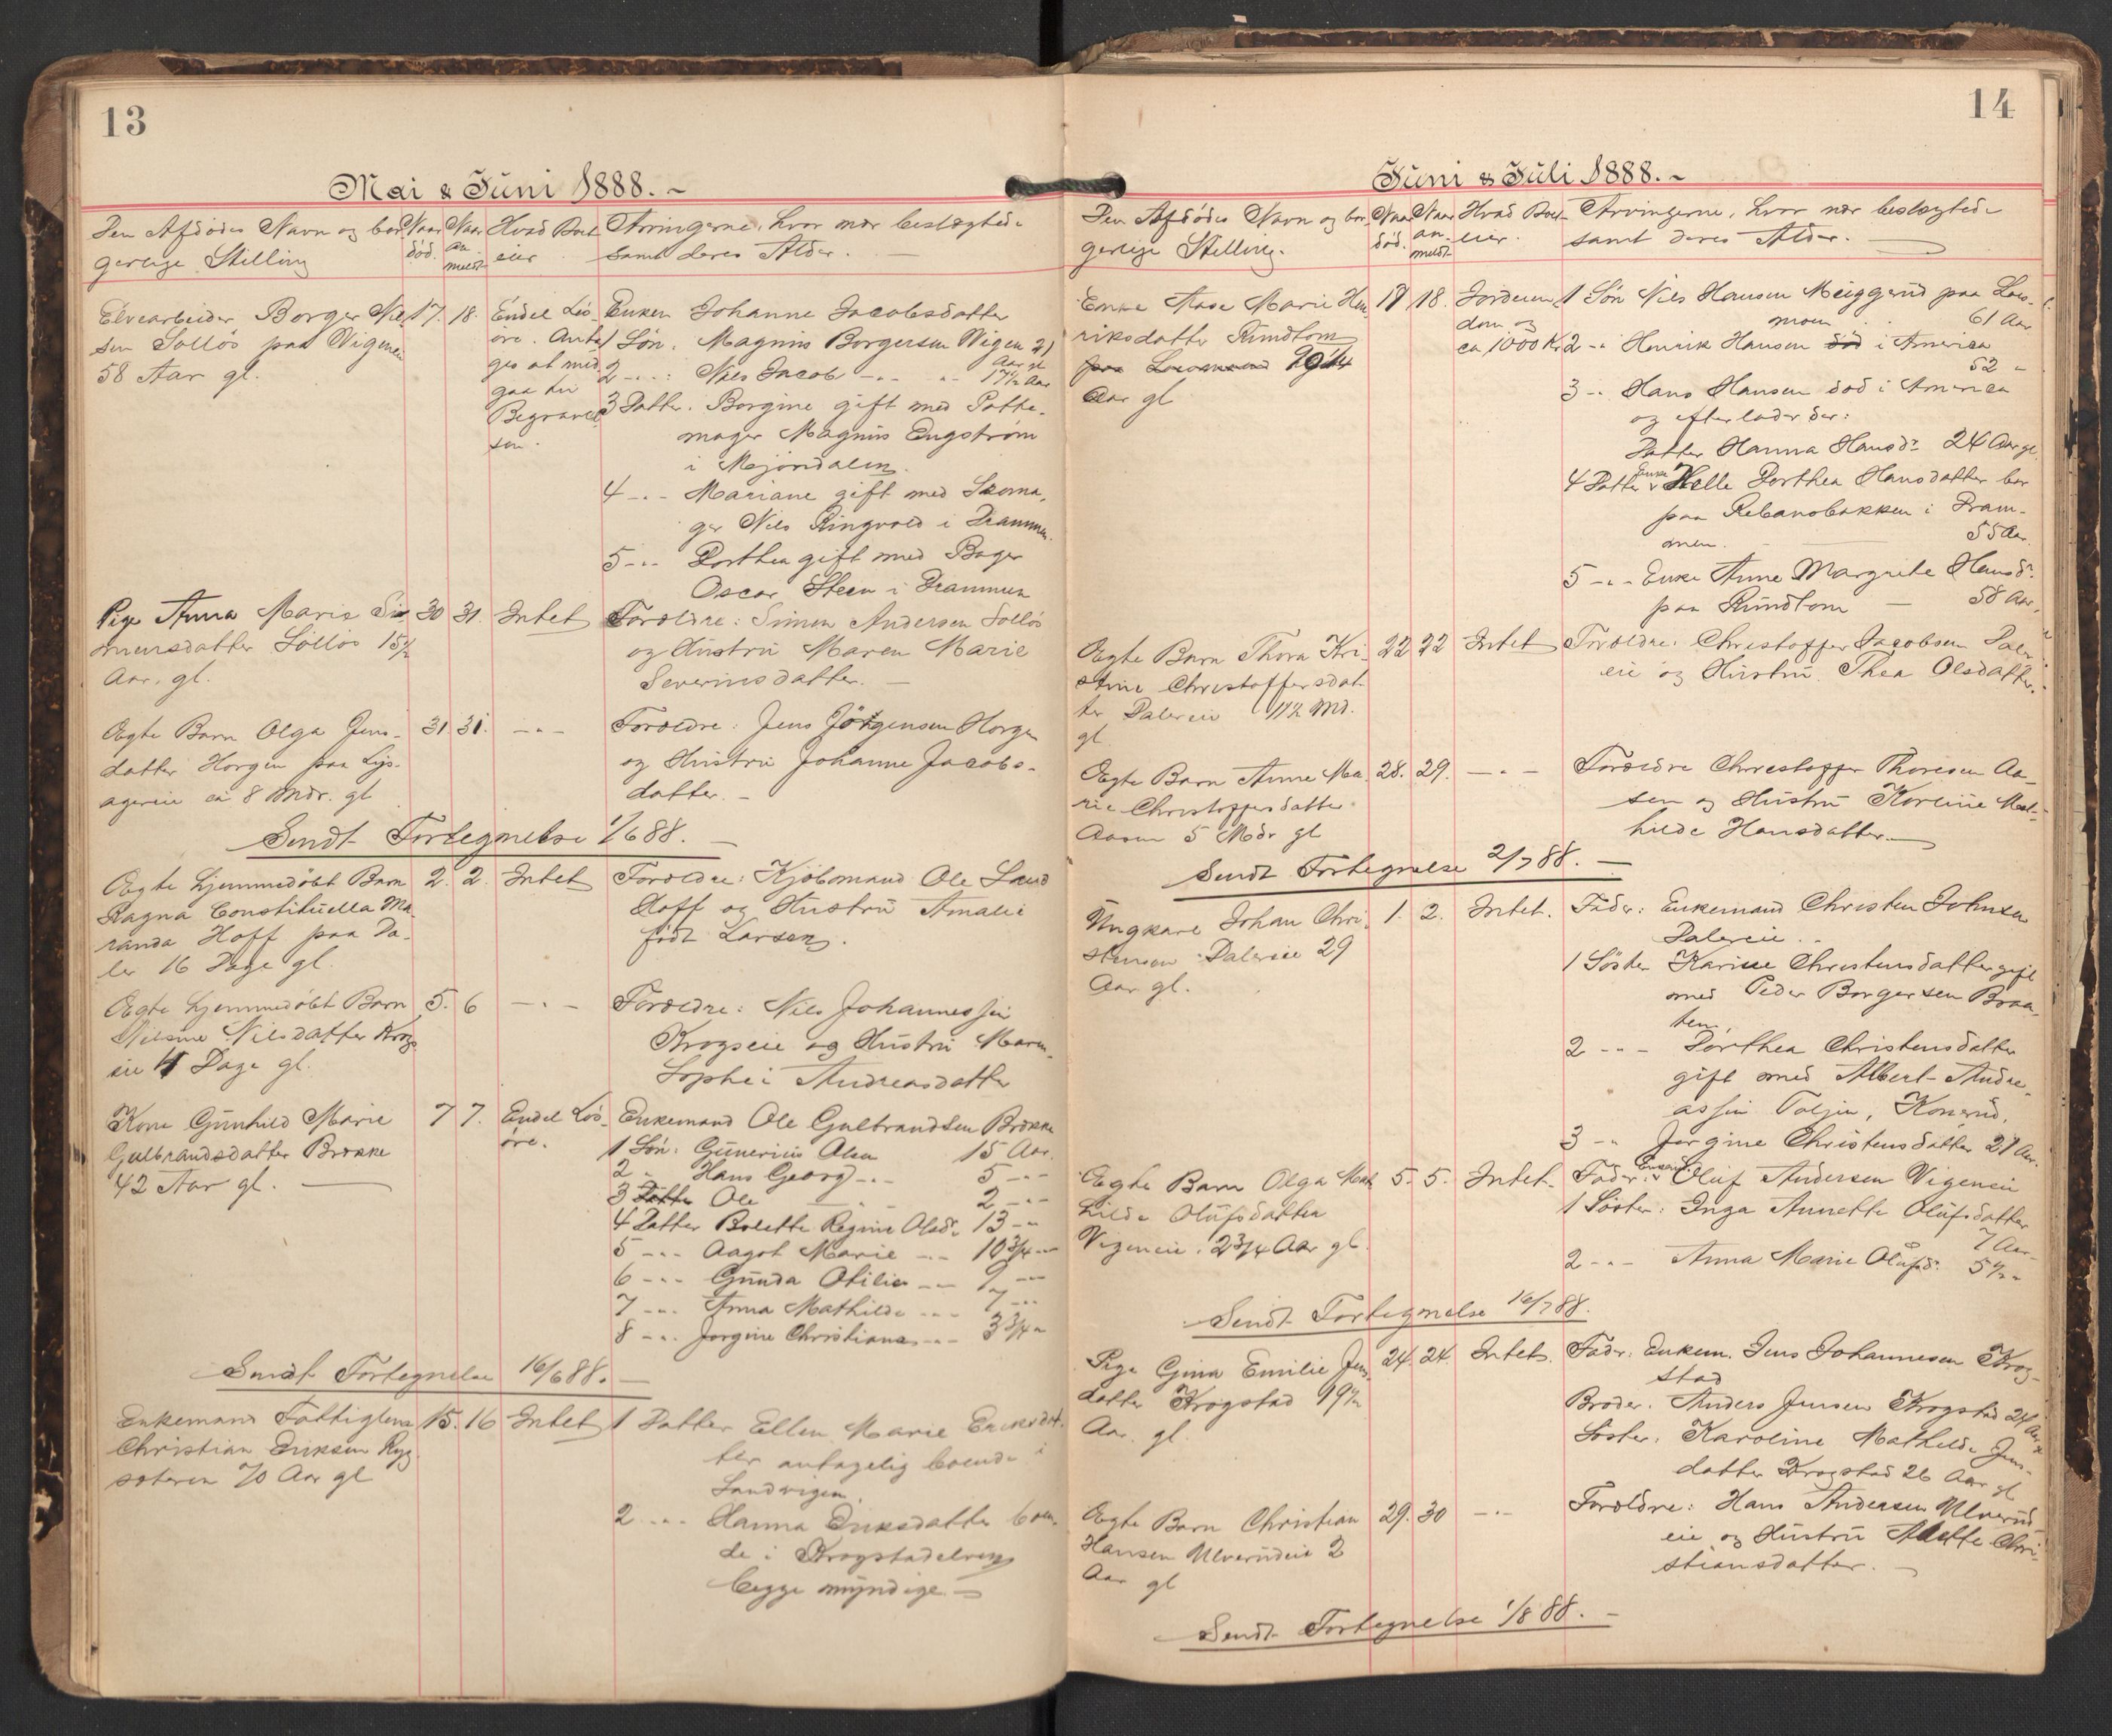 13
Mai & Juni 1888. -
Den Afdödes Navn og bor-
gerlige Stilling
Naar
död.
Naar
an
meldt
Hvad Boet
eier
Arvingerne, hvor nær beslægtede
samt deres Alder. -
Elvearbeider Borger Niel-
sen Solløs paa Vigeneie
58 Aar gl.
17. 18.
Endel Lös-
öre. Anta-
ges at med
gaa til
Begravel
sen.
Enken Johanne Jacobsdatter
1 Sön. Magnus Borgersen Vigen 21
Aar gl
2 - . - : Nils Jacob -"- -"- 17½ Aar
3 Datter. Borgine gift med Potte-
mager Magnus Engström
i Mjöndalen.
4 - . - Mariane gift med Skoma-
ger Nils Ringvold i Drammen.
5 - . - Dorthea gift med Bager
Oscar Steen i Drammen
Pige Anna Marie Si-
mensdatter Solløs 15½
Aar. gl.
30 31. Intet
Forældre: Simen Andersen Solløs
og Hustru Maren Marie
Severinsdatter. -
Ægte Barn Olga Jens-
datter Horgen paa Lijs-
agereie ca 8 Mdr. gl
31. 31. - " -
Forældre: Jens Jörgensen Horgen
og Hustru Johanne Jacobs-
datter. -
Sendt Fortegnelse 1/6 88. -
Ægte hjemmedöbt Barn
Ragna Constituella Ma-
randa Hoff paa Da-
ler 16 Dage gl.
2. 2. Intet
Forældre: Kjöbmand Ole
Hoff og Hustru Amalie
født Larsen.
Ægte hjemmedöbt Barn
Nilsine Nilsdatter Krogs-
eie 4 Dage gl.
5. 6 - . -
Forældre: Nils Johannessen
Krogseie og Hustru Maren
Sophie Andreasdatter
Kone Gunhild Marie
Gulbrandsdatter Brække
42 Aar gl. -
7 7. Endel Lös-
öre.
Enkemand Ole Gulbrandsen Brække
1 Sön: Gunerius Olsen 15 Aar.
2 " Hans Georg - . - 5 - . -
3 Datter Ole - 2 - . -
4 Datter Bolette Regine Olsdr 13 - "
5 - . - Aagot Marie - . - 10¾ - "
6 - . - Gunda Otilie - . - 9 - "
7 - . - Anna Mathilde - . - 7 - "
8 - . - Jorgine Christiane - . - 3¾ "
Sendt Fortegnelse 16/6 88. -
Enkemand Fattiglem
Christian Eriksen Ryg-
sæteren 70 Aar gl
15. 16 Intet
1 Datter Ellen Marie Eriksdat-
ter antagelig boende i
Sandvigen.
2 - . - Hanna Eriksdatter boen-
de i Krogstadelven
begge myndige. -
14
Juni & Juli 1888. -
Den Afdödes Navn og bor-
gerlige Stilling.
Naar
död.
Naar
an-
meldt
Hvad Boet
eier.
Arvingerne, hvor nær beslægtede
samt deres Alder. -
Enke Aase Marie Hen-
riksdatter Rundtom
paa
Aar gl
17 18. Jorden-
dom og
ca 1000 Kr
1 Sön Nils Hansen Meiggerud paa Loes-
moen . . 61 Aar
2 - " Henrik Hansen död i America
52 "
3 - . Hans Hansen död i America
og efterlader der:
Datter Hanna Hansdr 24 Aar gl.
4 Datter Enke Helle Dorthea Hansdatter bor
paa Rebanebakken i Dram-
men. - 55 Aar.
5 - . - Enke Anne Margrete Hansdr.
paa Rundtom - 58 Aar.
Ægte Barn Thora Kri-
stine Christoffersdat-
ter Dalereie 11½ Md.
gl.
22 22 Intet
Forældre: Christoffer Jacobsen Daler-
eie og Hustru Thea Olsdatter.
Ægte Barn Anne Ma-
rie Christoffersdatter
Aasen 5 Mdr gl
28. 29. - . -
Forældre Christoffer Thoresen Aa-
sen og Hustru Karoline Mat-
hilde Hansdatter. -
Sendt Fortegnelse 2/7 88. -
Ungkarl Johan Chri-
stensen Dalereie 29
Aar gl.
1. 2. Intet.
Fader: Enkemand Christen Johnsen
Dalereie. .
1 Söster Karine Christensdatter gift
med Peder Borgersen Braa-
ten.
2 - . - Dorthea Christensdatter
gift med Albert Andre-
assen Toljen, Konerud.
3 - " Jorgine Christensdatter 21 Aar.
Ægte Barn Olga Mat-
hilde Olufsdatter
Vigeneie. 2¾ Aar gl.
5. 5. Intet.
Fader: Enkem. Oluf Andersen Vigeneie
1 Söster: Inga Annette Olufsdatter
7 Aar.
2 - . - Anna Marie Olufsdr. 5½ "
Sendt Fortegnelse 16/7 88.
Pige Gina Emilie Jens-
datter Krogstad 19½
Aar. gl.
24. 24. Intet.
Fader. Enkem. Jens Johannesen Krog-
stad
Broder. Anders Jensen Krogstad 24 Aar
Söster. Karoline Mathilde Jens-
datter Krogstad 26 Aar gl
Ægte Barn Christian
Hansen Ulverudeie 2
Aar gl
29. 30 - . -
Forældre: Hans Andersen Ulverud-
eie og Hustru Alette Chri-
stiansdatter. -
Sendt Fortegnelse 1/8 88. -